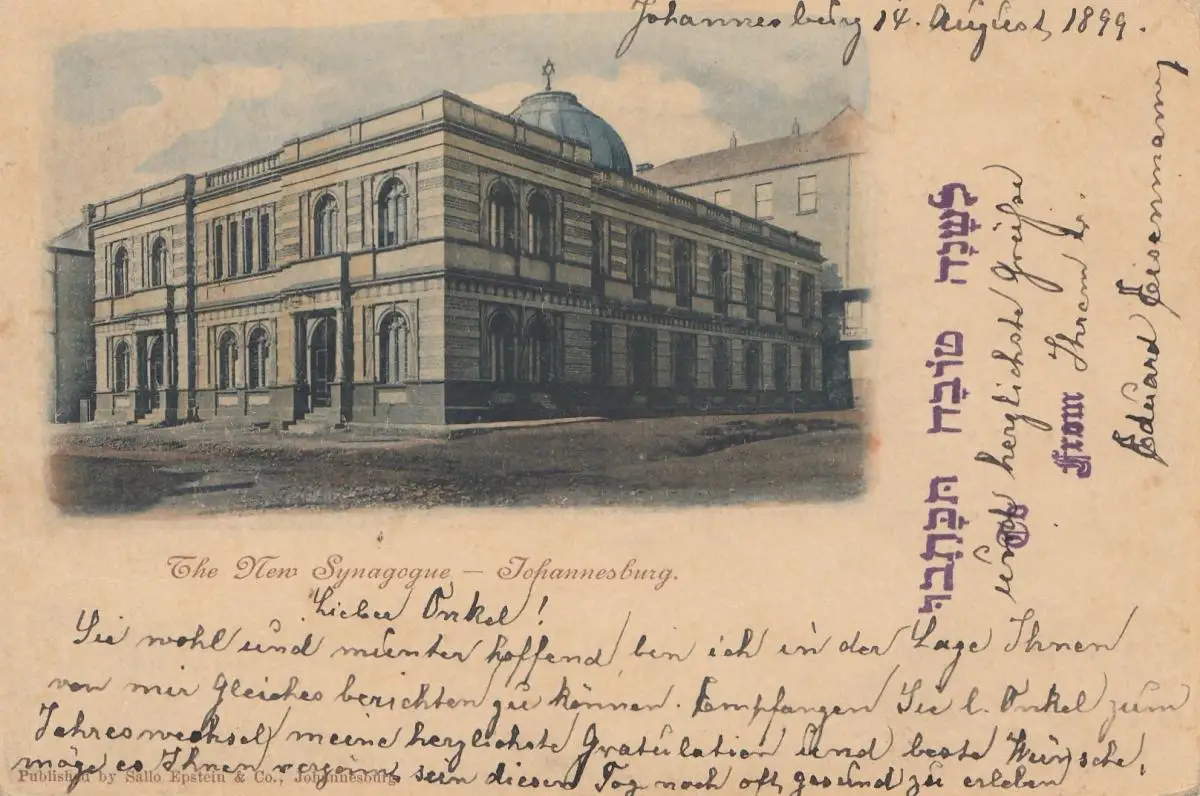 Johannesburg 14. August, 1899.
The New Synagogue — Johannesburg.
Lieber Onkel!
Sie wohl und munter hoffend, bin ich in der Lage Ihnen
von mir gleiches berichten zu können. Empfangen Sie l. Onkel zum
Jahreswechsel meine herzlichste Gratulation und beste Wünsche,
möge es Ihnen vergönnt sein diesen Tag noch oft gesund zu erleben
Published by Sallo Epstein & Co., Johannesburg
לְשָׁנָה טוֹבָה תִּכָּתֵבוּ
und herzlichste Grüße
To
From Ihrem
Eduard